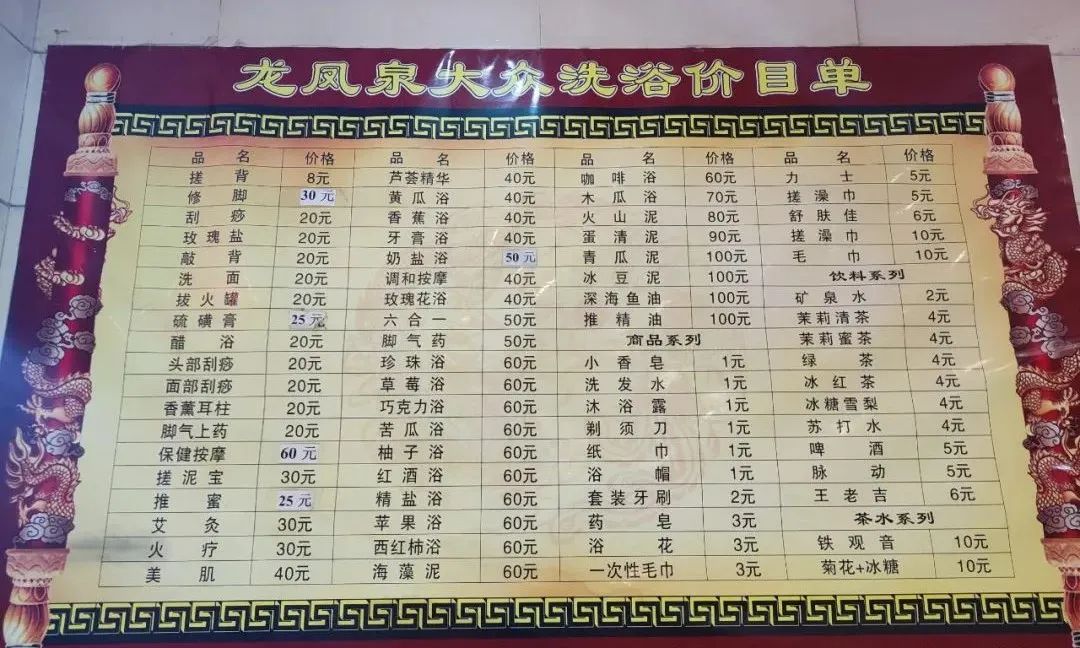 龙凤泉大众洗浴价目单
品 名 价格 品 名 价格 品 名 价格 品 名 价格
搓 背 8元 芦荟精华 40元 咖啡浴 60元 力 士 5元
修 脚 30元 黄瓜浴 40元 木瓜浴 70元 搓澡巾 5元
刮 痧 20元 香蕉浴 40元 火山泥 80元 舒肤佳 6元
玫瑰盐 20元 牙膏浴 40元 蛋清泥 90元 搓澡巾 10元
敲 背 20元 奶盐浴 50元 青瓜泥 100元 毛 巾 10元
洗 面 20元 调和按摩 40元 冰豆泥 100元 饮料系列
拔火罐 20元 玫瑰花浴 40元 深海鱼油 100元 矿泉水 2元
硫磺膏 25元 六合一 50元 推精油 100元 茉莉清茶 4元
醋 浴 20元 脚气药 50元 商品系列 茉莉蜜茶 4元
头部刮痧 20元 珍珠浴 60元 小香皂 1元 绿 茶 4元
面部刮痧 20元 草莓浴 60元 洗发水 1元 冰红茶 4元
香薰耳柱 20元 巧克力浴 60元 沐浴露 1元 冰糖雪梨 4元
脚气上药 20元 苦瓜浴 60元 剃须刀 1元 苏打水 4元
保健按摩 60元 柚子浴 60元 纸 巾 1元 啤 酒 5元
搓泥宝 30元 红酒浴 60元 浴 帽 1元 脉 动 5元
推 蜜 25元 精盐浴 60元 套装牙刷 2元 王老吉 6元
艾 灸 30元 苹果浴 60元 药 皂 3元 茶水系列
火 疗 30元 西红柿浴 60元 浴 花 3元 铁观音 10元
美 肌 40元 海藻泥 60元 一次性毛巾 3元 菊花+冰糖 10元